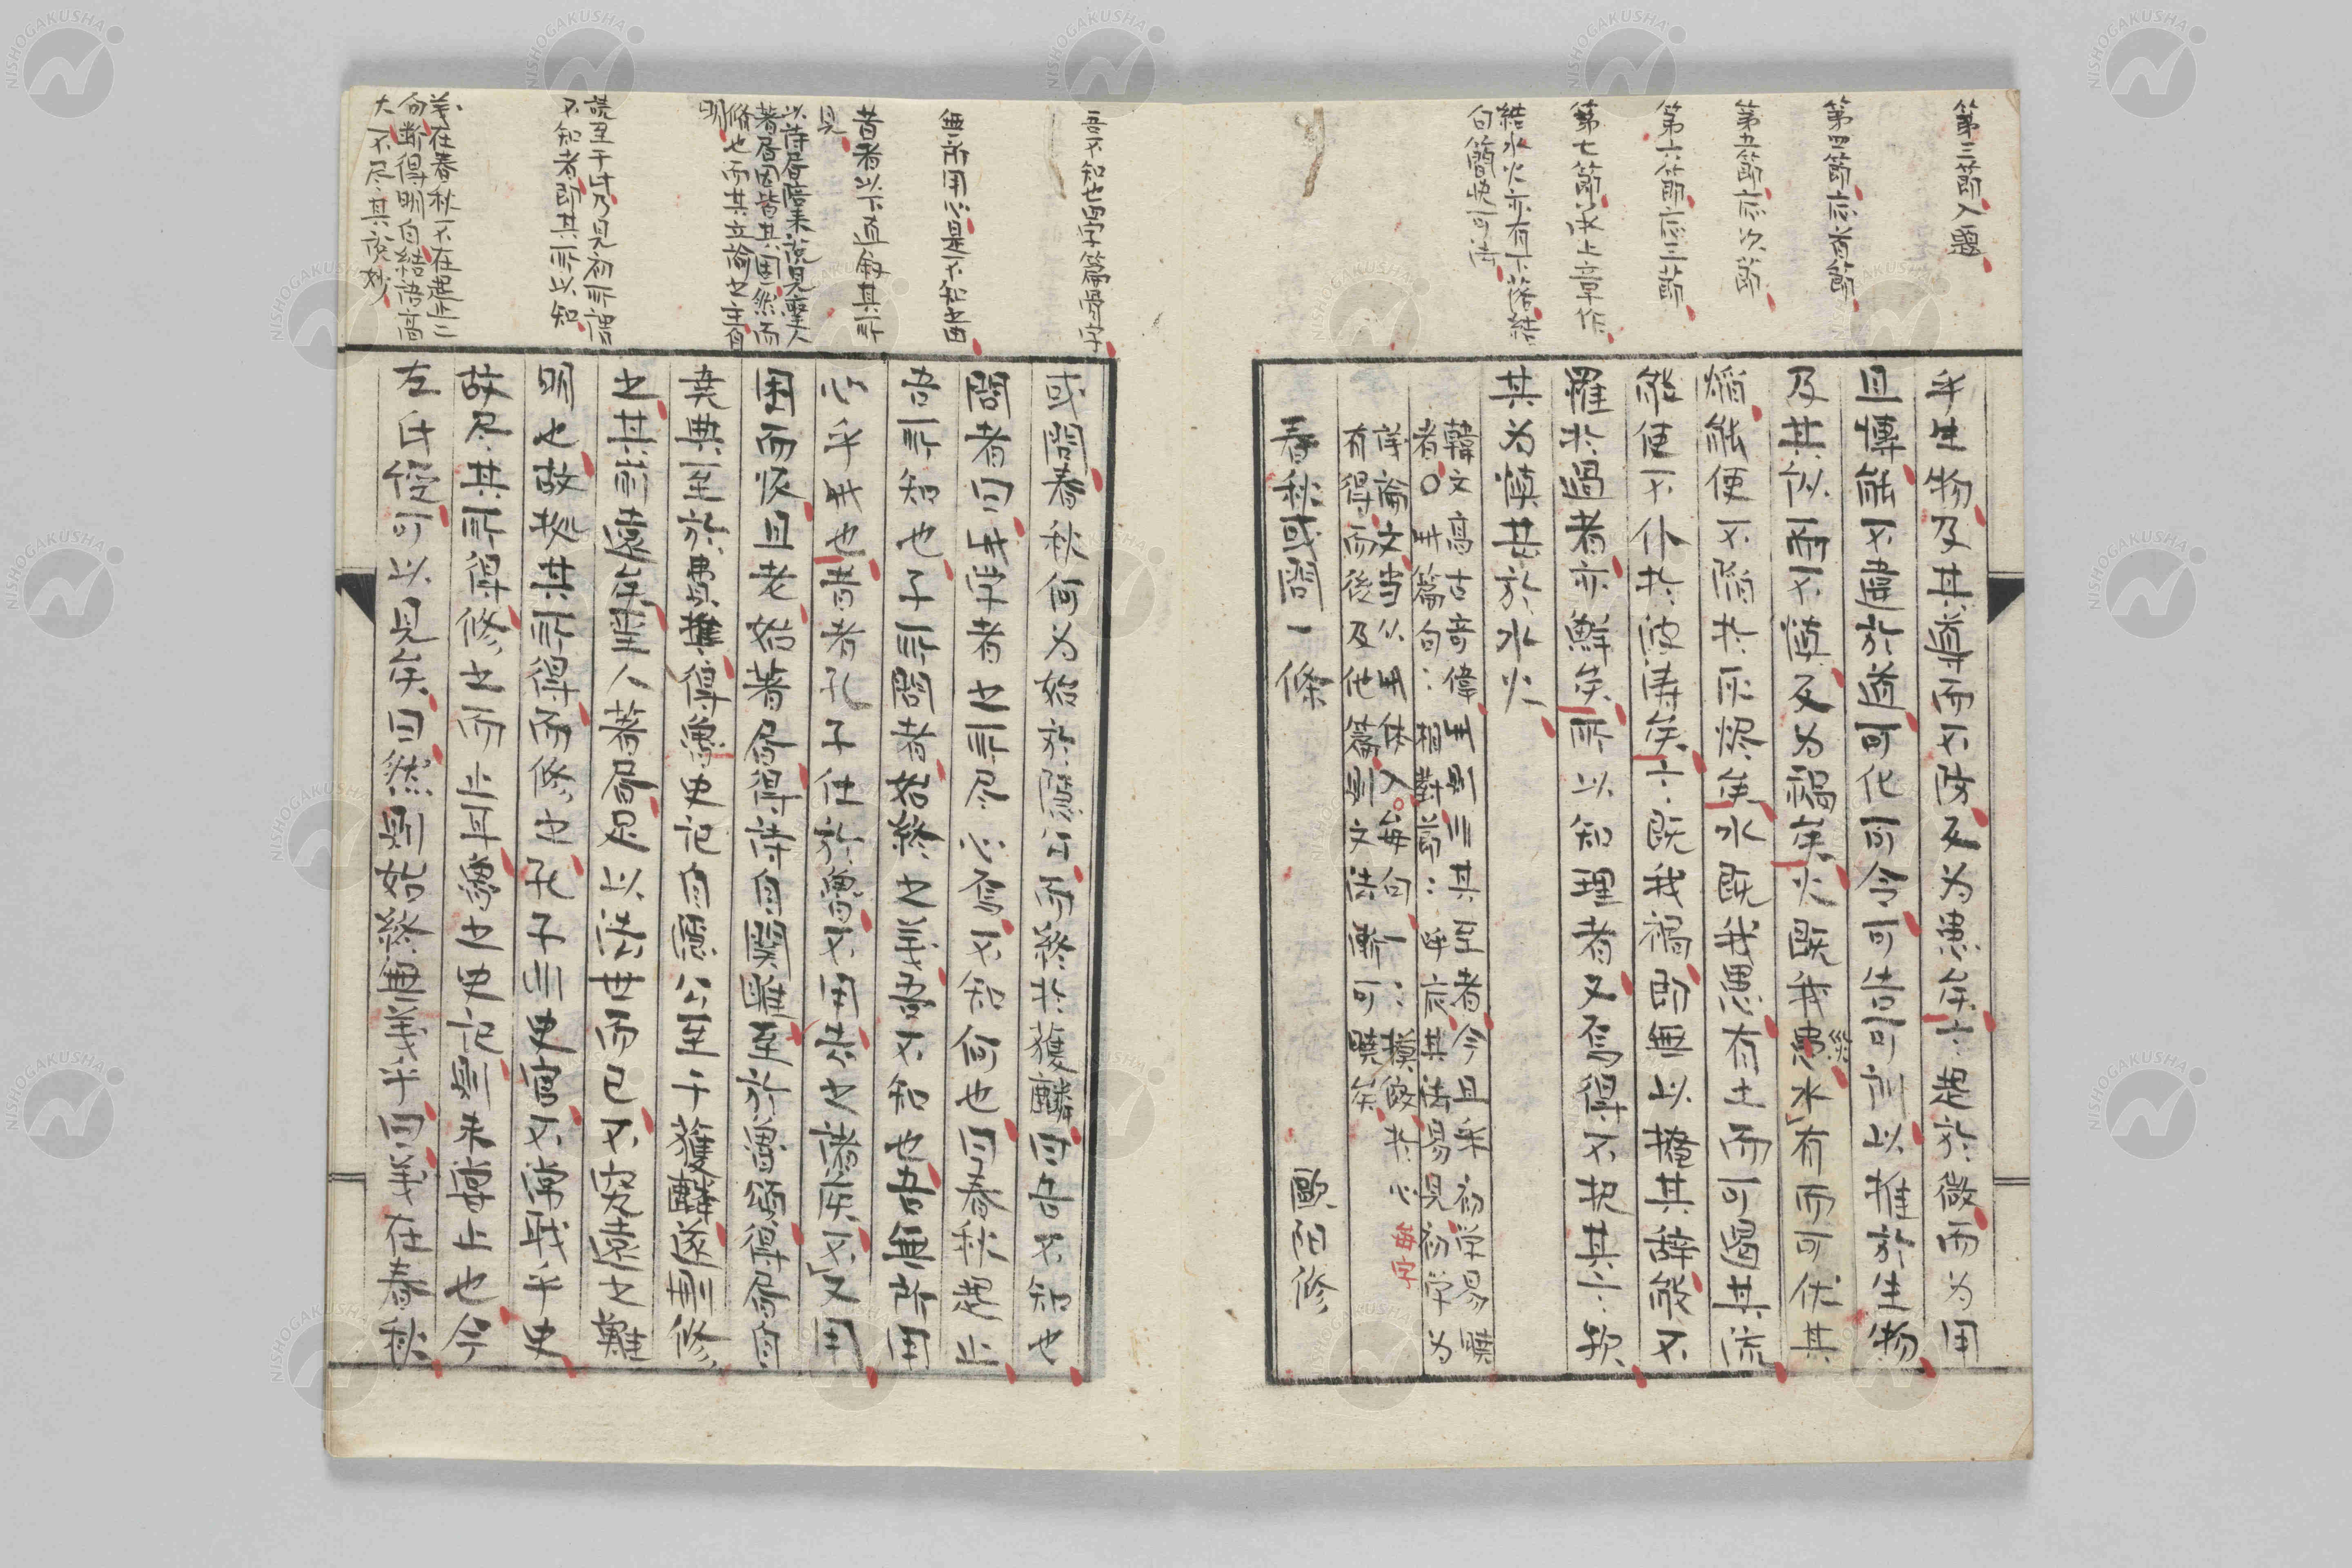 第三節入題
第四節應首節
第五節應次節
第六節應三節
第七節承上章作
結水火亦有下落結
句簡快可法
乎生物及其導而不防反为患矣言起於微而为用
且博能不違於道可化可令可告可訓以推於生物
及其从而不慎反为禍矣火既我患水有而可伏其
災
焰能使不陷於灰燼矣水既我患有土而可遏其流
能使不仆於波涛矣言既我禍即無以掩其辞能不
罹於過者亦鮮矣所以知理者又焉得不択其言歟
其为慎甚於水火
韓文高古奇偉此則其至者今且采初学易曉
者○此篇句〻相對節〻呼应其法易見初学为
論文当从此入每句一〻摸倣於心
每字
有得而後及他篇則文法漸可曉矣
春秋或問一條 歐阳修
吾不知也四字篇骨字
無所用心是不知之由
昔者以下直敘其所
見
以詩居陪来説見聖人
著居因皆其固然而
脩也而其立論之主自
明
読至于此乃見初所謂
不知者即其所以知
義在春秋不在起止二
句断得明白結語高
大不尽其説妙
或問春秋何为始於隱公而終於獲麟曰吾不知也
問者曰此学者之所尽心焉不知何也曰春秋起止
吾所知也子所問者始終之義吾不知也吾無所用
心乎此也昔者孔子仕於魯不用去之諸侯又不用
困而後且老始著居得詩自関雎至於魯頌得居自
尭典至於費誓得魯史記自隱公至于獲麟遂刪修
之其前遠矣聖人著居足以法世而已不窮遠之難
明也故拠其所得而修之孔子非史官不常职乎史
故尽其所得修之而止耳魯之史記則未嘗止也今
左氏経可以見矣曰然則始終無義乎曰義在春秋